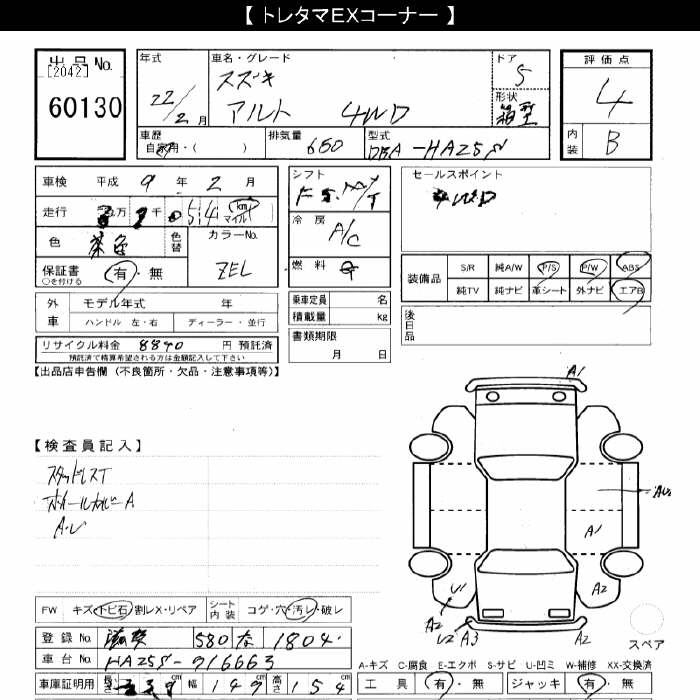 【 トレタマEXコーナー 】
出品 No.
[2042]
60130
年式
22/2 月
車名・グレード
スズキ
アルト 4WD
ドア
5
形状
箱型
評価点
4
内装
B
車歴
自家用・( )
排気量
660
型式
DBA-HA25S
車検 平成 9 年 2 月
走行 万 千 54 km マイル
色 茶色
色替
カラーNo.
ZEL
保証書 有・無
○を付ける
シフト
F5 M/T
冷房
A/C
燃料
セールスポイント
4WD
装備品
S/R 純A/W P/S P/W ABS
純TV 純ナビ 革シート 外ナビ エアB
外車
モデル年式 年
ハンドル 左・右 ディーラー・並行
乗車定員 名
積載量 kg
後日品
リサイクル料金 8890 円 預託済
預託済で精算希望される方は金額記入して下さい
書類期限
月 日
【出品店申告欄 (不良箇所・欠品・注意事項等)】
【検査員記入】
スタッドレスT
ホイールカバーA
A・U
A1
AU2
A1
U1
A2
A2
U2
A3
A2
スペア
FW キズ・トビ石・割レX・リペア
シート内装 コゲ・穴・汚レ・破レ
登録 No. 滋賀 580 な 1804
車台 No. HA25S-716663
車庫証明用 長さ 339 cm 幅 149 cm 高さ 154 cm
A-キズ C-腐食 E-エクボ S-サビ U-凹ミ W-補修 XX-交換済
工具 有・無 ジャッキ 有・無